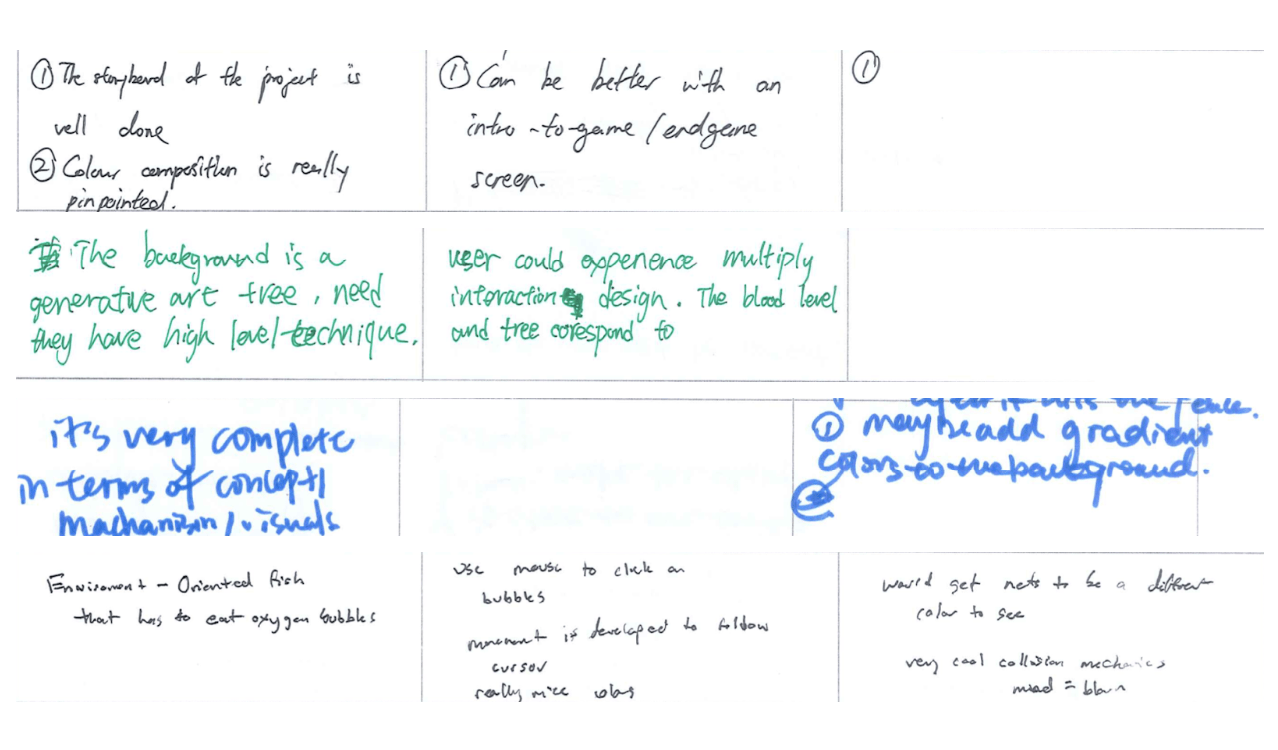 ① The storyboard of the project is
well done
② Colour composition is really
pinpointed.
① Can be better with an
intro-to-game/endgame
screen.
①
The background is a
generative art tree, need
they have high level technique.
user could experience multiply
interaction design. The blood level
and tree corespond to
it's very complete
in terms of concept/
mechanism/visuals
after it hits the fence.
① maybe add gradient
colors to the background.
Enviroment - Oriented fish
that has to eat oxygen bubbles
use mouse to click on
bubbles
movement is developed to follow
cursor
really nice
would get nets to be a different
color to see
very cool collision mechanics
mind = blown